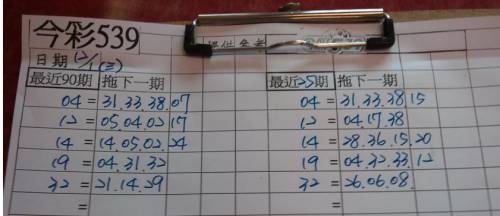 今彩539
提供參考
日期 12/1(三)
最近90期 拖下一期 最近25期 拖下一期
04 = 31.33.38.07 04 = 31.33.38.15
12 = 05.04.02.17 12 = 04.17.38
14 = 14.05.02.24 14 = 28.36.15.20
19 = 04.31.32 19 = 04.32.33.12
32 = 21.14.29 32 = 26.06.08.
= =